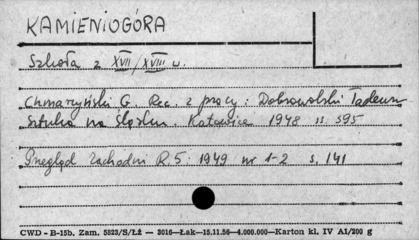 KAMIENIOGÓRA
Szkoła z XVII/XVIII w.
Chmarzyński G. Rec. z pracy: Dobrowolski Tadeusz
Sztuka na Śląsku. Katowice 1948 ss 395
Przegląd Zachodni R. 5. 1949 nr 1-2 s. 141
CWD - B-15b. Zam. 5823/S/Łź — 3016—Łak—15.11.56—4.000.000—Karton kl. IV A1/200 g